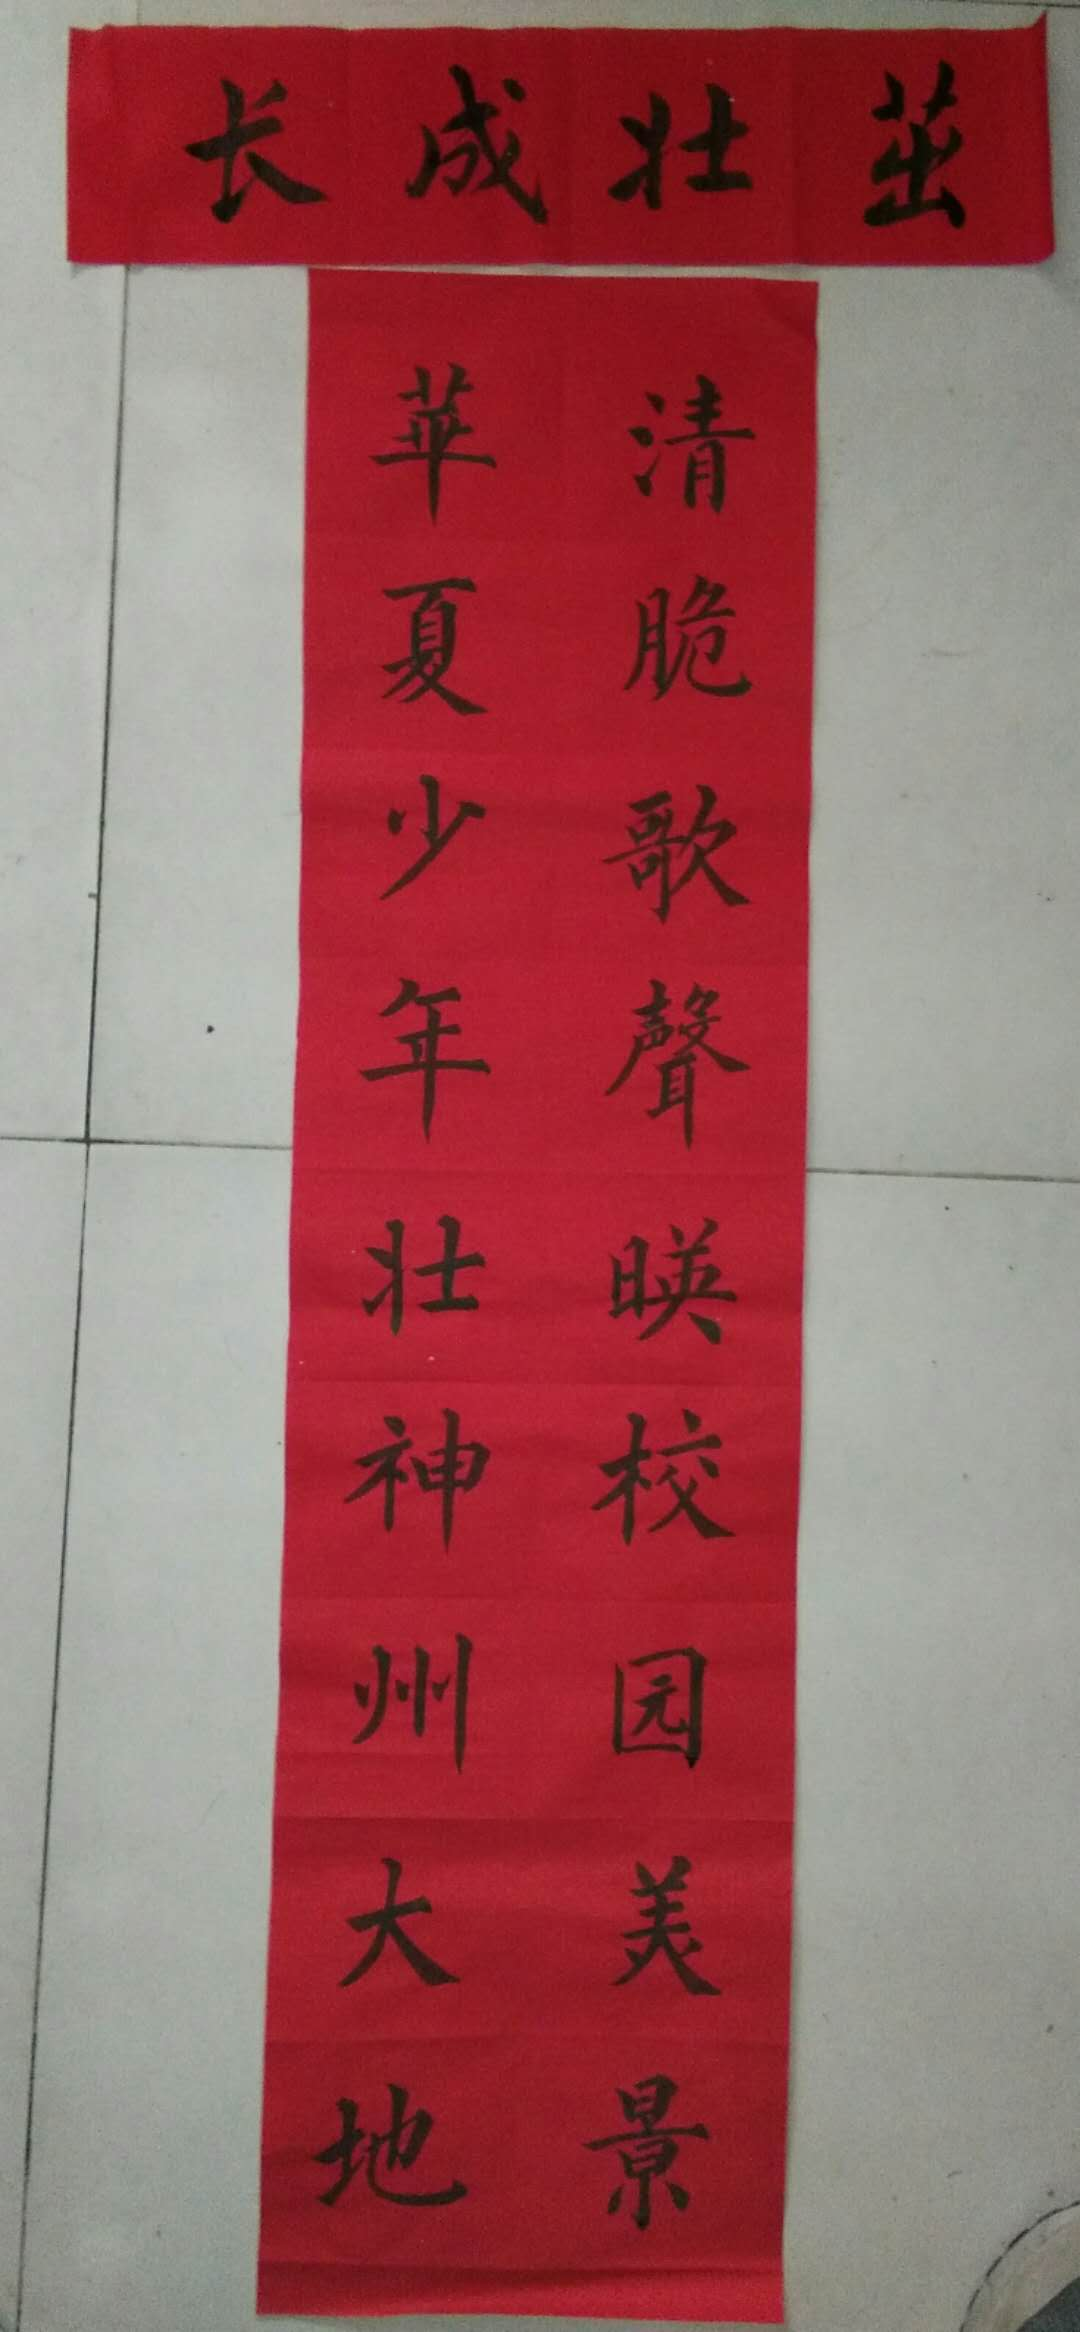 茁壮成长
清脆歌聲暎校园美景
華夏少年壮神州大地